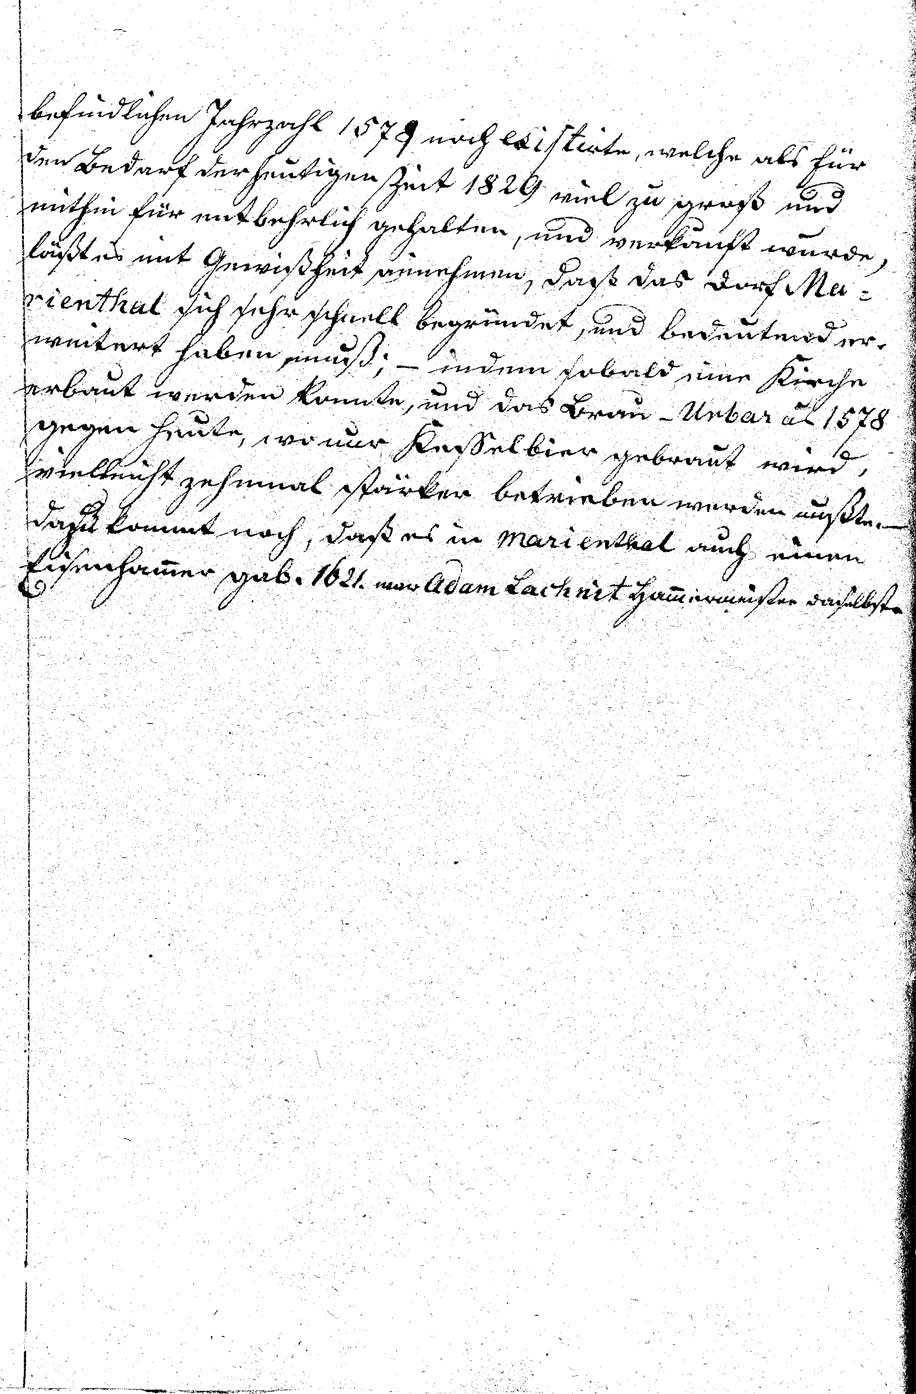 befindlichen Jahrzahl 1578 noch existirte, welche als für
den Bedarf der heutigen Zeit 1829 viel zu groß und
mithin für entbehrlich gehalten, und verkauft wurde,
läßt es mit Gewißheit annehmen, daß das Dorf Ma=
rienthal sich sehr schnell begründet, und bedeutend er-
weitert haben muß; – indem sobald eine Kirche
erbaut werden konnte, und das Brau-Urbar ao 1578
gegen heute, wo nur Kesselbier gebraut wird,
vielleicht zehnmal stärker betrieben werden mußte. –
dazu kommt noch, daß es in Marienthal auch einen
Eisenham̄er gab. 1621. war Adam Lachnit Ham̄ermeister daselbst.